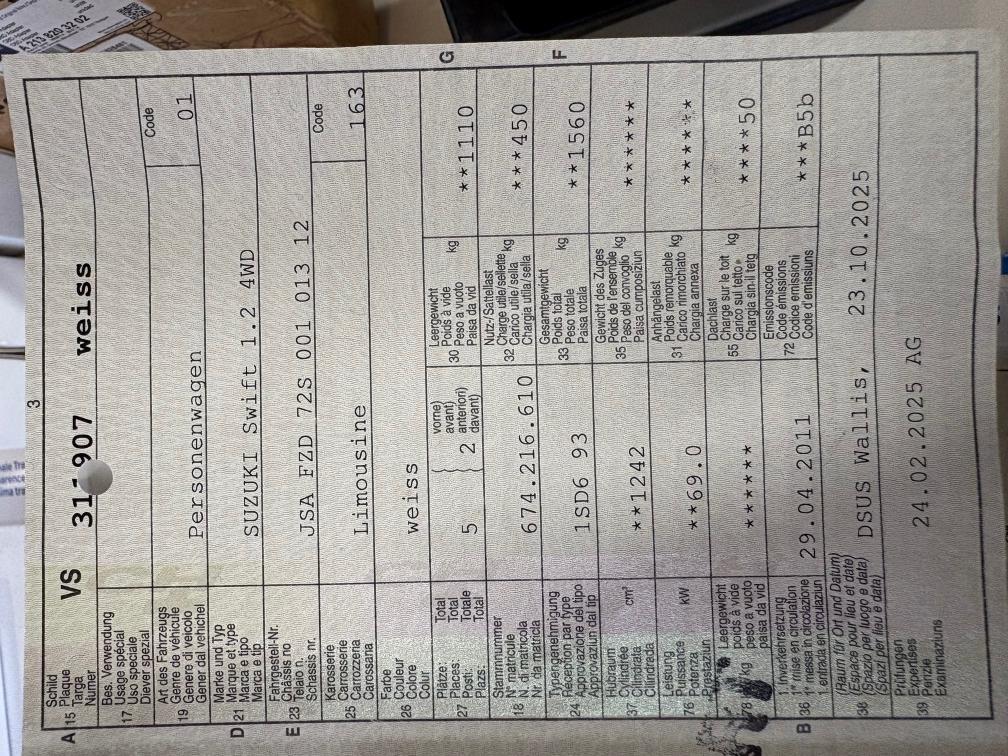 3
A 15 Schild
Plaque
Targa
Numer
VS 907 weiss
17 Bes. Verwendung
Usage spécial
Uso speciale
Diever spezial
19 Art des Fahrzeugs
Genre de véhicule
Genere di veicolo
Gener dal vehichel
Personenwagen
Code
01
D 21 Marke und Typ
Marque et type
Marca e tipo
Marca e tip
SUZUKI Swift 1.2 4WD
E 23 Fahrgestell-Nr.
Châssis no
Telaio n.
Schassis nr.
JSA FZD 72S 001 013 12
25 Karosserie
Carrosserie
Carrozzeria
Carosaria
Limousine
Code
163
26 Farbe
Couleur
Colore
Colur
weiss
27 Plätze: Total
Places: Total
Posti: Totale
Plazs: Total
5
2
vorne)
avant)
anteriori)
davant)
30 Leergewicht
Poids à vide
Peso a vuoto
Paisa da vid
kg
**1110
G
18 Stammnummer
N° matricule
N. di matricola
Nr. da matricla
674.216.610
32 Nutz-/Sattellast
Charge utile/sellette
Carico utile / sella
Chargia utila / sella
kg
***450
24 Typengenehmigung
Réception par type
Approvazione del tipo
Approvaziun dal tip
1SD6 93
33 Gesamtgewicht
Poids total
Peso totale
Paisa totala
kg
**1560
F
37 Hubraum
Cylindrée
Cilindrata
Cilindrada
cm³
**1242
35 Gewicht des Zuges
Poids de l'ensemble
Peso del convoglio
Paisa cumposiziun
kg
******
76 Leistung
Puissance
Potenza
kW
**69.0
31 Anhängelast
Poids remorquable
Carico rimorchiato
Chargia annexa
kg
******
78 kg Leergewicht
poids à vide
peso a vuoto
paisa da vid
******
55 Dachlast
Charge sur le toit
Carico sul tetto
Chargia sin il tetg
kg
****50
B 36 1. Inverkehrsetzung
1re mise en circulation
1a messa in circolazione
1. entrada en circulaziun
29.04.2011
72 Emissionscode
Code émissions
Codice emissioni
Code d'emissiuns
***B5b
38 (Raum für Ort und Datum)
(Espace pour lieu et date)
(Spazio per luogo e data)
(Spazi per lieu e data)
DSUS Wallis, 23.10.2025
39 Prüfungen
Expertises
Perizie
Examinaziuns
24.02.2025 AG